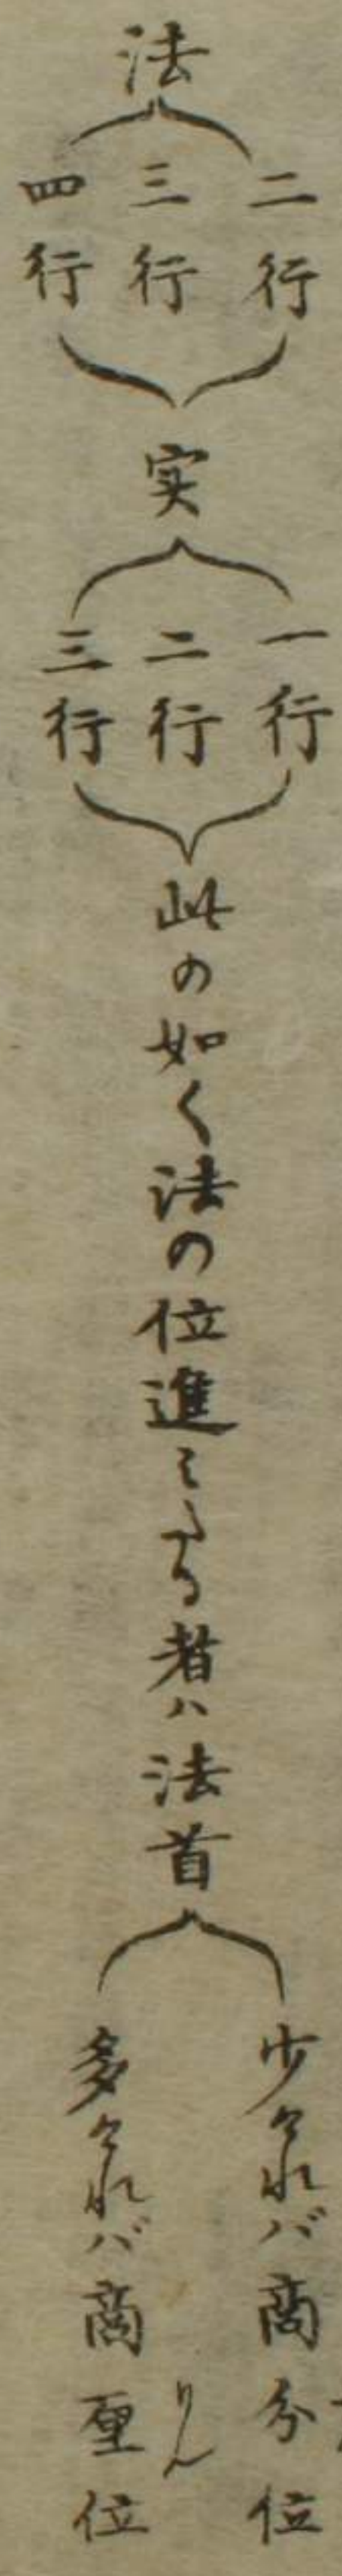 法
二行
三行
四行
実
一行
二行
三行
此の如く法の位進ミたる者ハ法首
少けれバ商分位
多けれバ商厘位
りん